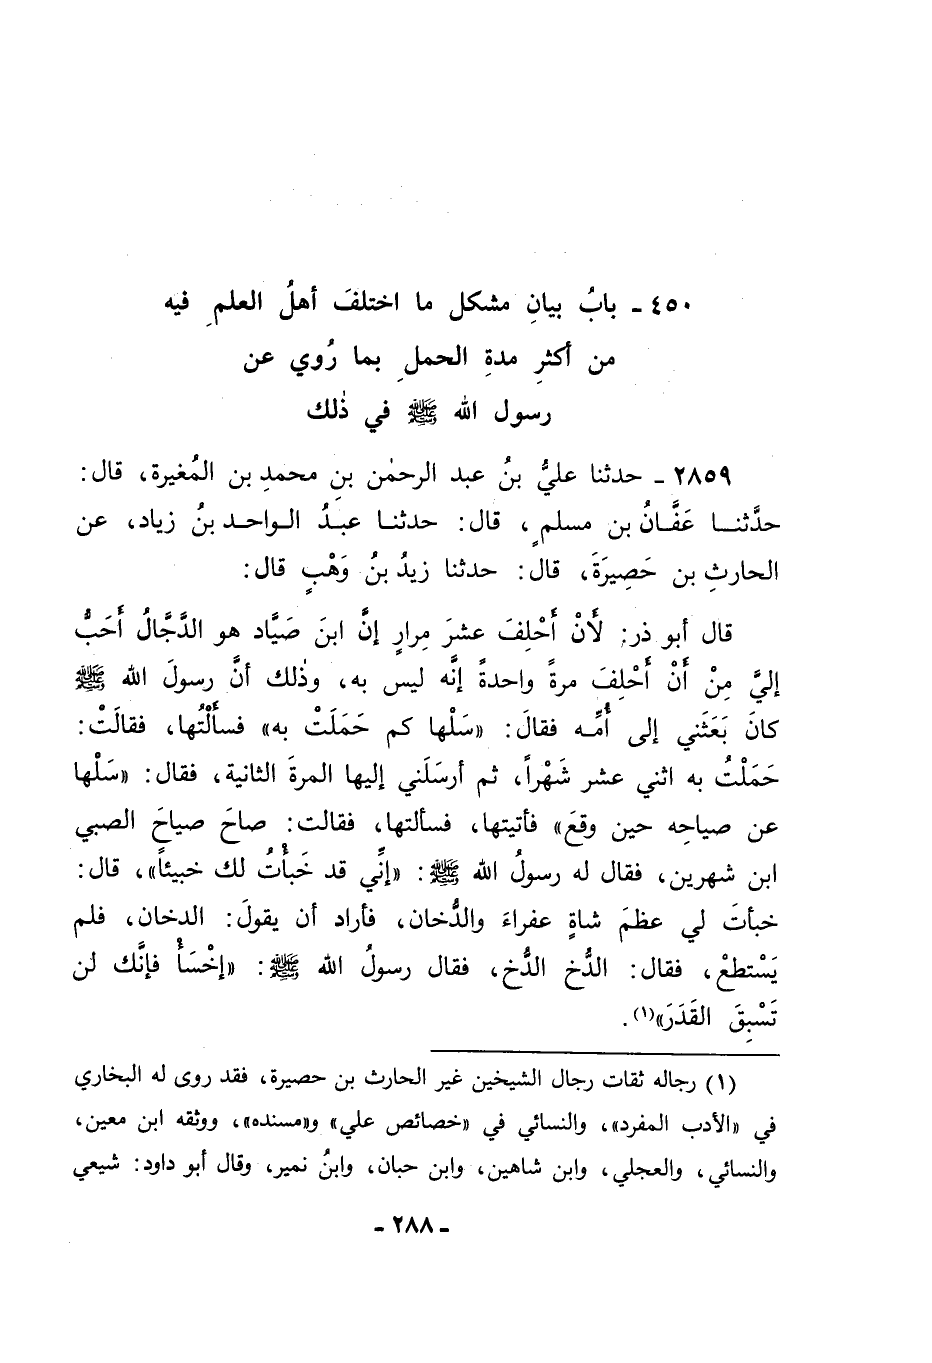 ٤٥٠ ـ بابُ بيانِ مشكل ما اختلفَ أهلُ العلمِ فيه
من أكثرِ مدةِ الحملِ بما رُوي عن
رسول الله ﷺ في ذٰلك
٢٨٥٩ ـ حدثنا عليُّ بنُ عبد الرحمٰن بنِ محمدِ بن المُغيرة، قال:
حدَّثنا عَفَّانُ بن مسلمٍ، قال: حدثنا عبدُ الواحد بنُ زياد، عن
الحارثِ بن حَصِيرَةَ، قال: حدثنا زيدُ بنُ وَهْبٍ قال:
قال أبو ذر: لَأَنْ أَحْلِفَ عشرَ مِرارٍ إنَّ ابنَ صَيَّاد هو الدَّجَّالُ أَحَبُّ
إليَّ مِنْ أَنْ أَحْلِفَ مرةً واحدةً إنَّه ليس به، وذٰلك أنَّ رسولَ الله ﷺ
كانَ بَعَثَني إلى أُمِّه فقالَ: «سَلْها كم حَمَلَتْ به» فسأَلْتُها، فقالَتْ:
حَمَلْتُ به اثني عشر شَهْراً، ثم أرسَلَني إليها المرةَ الثانية، فقال: «سَلْها
عن صياحِه حين وقعَ» فأتيتها، فسألتها، فقالت: صاحَ صياحَ الصبي
ابن شهرين، فقال له رسولُ الله ﷺ: «إنِّي قد خَبأْتُ لك خبيئاً»، قال:
خبأتَ لي عظمَ شاةٍ عفراءَ والدُّخان، فأراد أن يقولَ: الدخان، فلم
يَسْتطعْ، فقال: الدُّخ الدُّخ، فقال رسولُ الله ﷺ: «إخْسَأْ فإنَّك لن
تَسْبِقَ القَدَرَ»(١).
(١) رجاله ثقات رجال الشيخين غير الحارث بن حصيرة، فقد روى له البخاري
في «الأدب المفرد»، والنسائي في «خصائص علي» و«مسنده»، ووثقه ابن معين،
والنسائي، والعجلي، وابن شاهين، وابن حبان، وابنُ نمير، وقال أبو داود: شيعي
ـ ٢٨٨ ـ